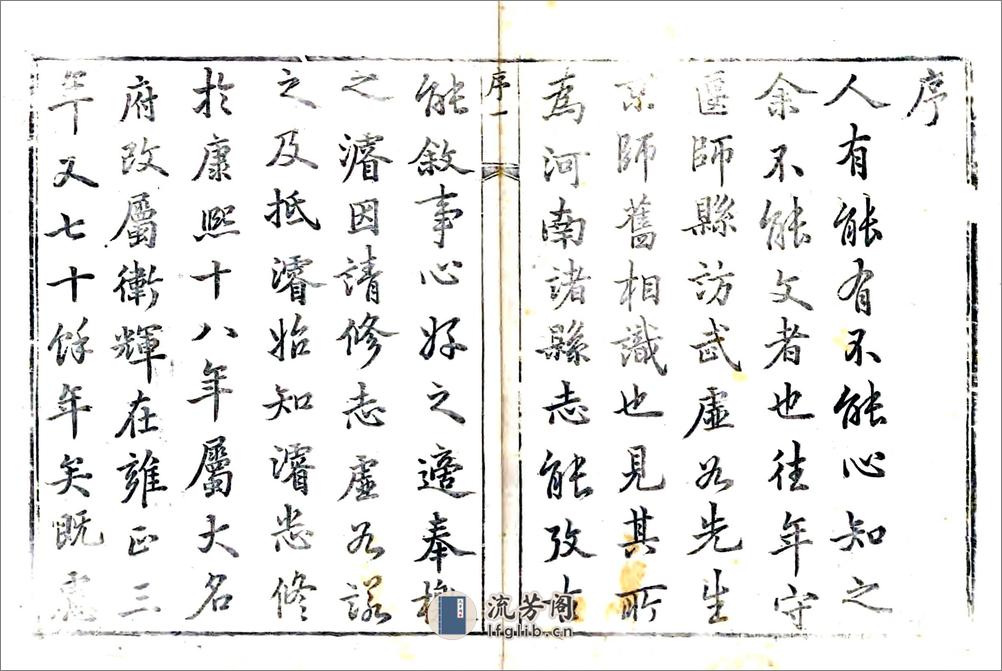 序
人有能有不能心知之
余不能文者也往年守
偃師縣訪武虛谷先生
京師舊相識也見其所
為河南諸縣志能攷古
序一
能敘事心好之適奉檄
之濬因請修志虛谷諾
之及抵濬始知濬志修
於康熙十八年屬大名
府改屬衛輝在雍正三
年又七十餘年矣既
流芳阁
lfglib.cn